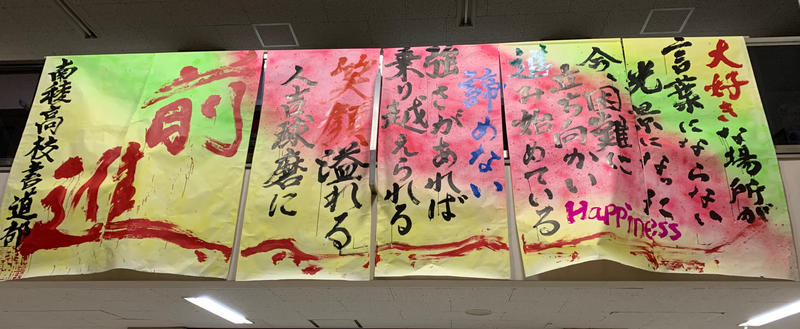 大好きな場所が
言葉にならない
光景になった
今、困難に
立ち向かい
進み始めている
Happiness
諦めない
強さがあれば
乗り越えられる
笑顔溢れる
人吉球磨に
前進
南稜高校書道部